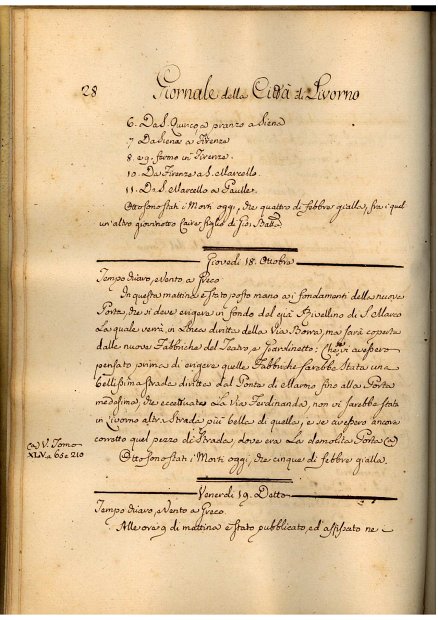 28 Giornale della Città di Livorno
6. Da S. Quirico a pranzo a Siena
7. Da Siena a Firenze
8. e 9. fermo in Firenze.
10. Da Firenze a S. Marcello.
11. Da S. Marcello a Paulle.
Otto sono stati i Morti oggi, che quattro di febbre gialla, fra i quali
un'altro giovinotto Cave figlio di Gio. Batta
Giovedì 18. Ottobre
Tempo chiaro, e Vento a Greco
In questa mattina è stato posto mano a i fondamenti della nuova
Porta, che si deve erigere in fondo del già Rivellino di S. Marco
la quale verrà in Linea diritta della Via Nuova, ma sarà coperta
dalle nuove Fabbriche del Teatro, e Giardinetto: Che vi avessero
pensato prima di erigere quelle Fabbriche sarebbe stata una
bellissima strada diritta dal Ponte di Marmo fino alla Porta
medesima, che eccettuata la Via Ferdinanda, non vi sarebbe stata
in Livorno altra Strada più bella di quella, e se avessero ancora
corretto quel pezzo di Strada, dove era la demolita Porta (a)
(a) V. Tomo
XLV. a 65 e 210
Otto sono stati i Morti oggi, che cinque di febbre gialla.
Venerdì 19. Detto
Tempo chiaro, e Vento a Greco.
Alle ore 9 di mattina è stato pubblicato, ed affissato ne-